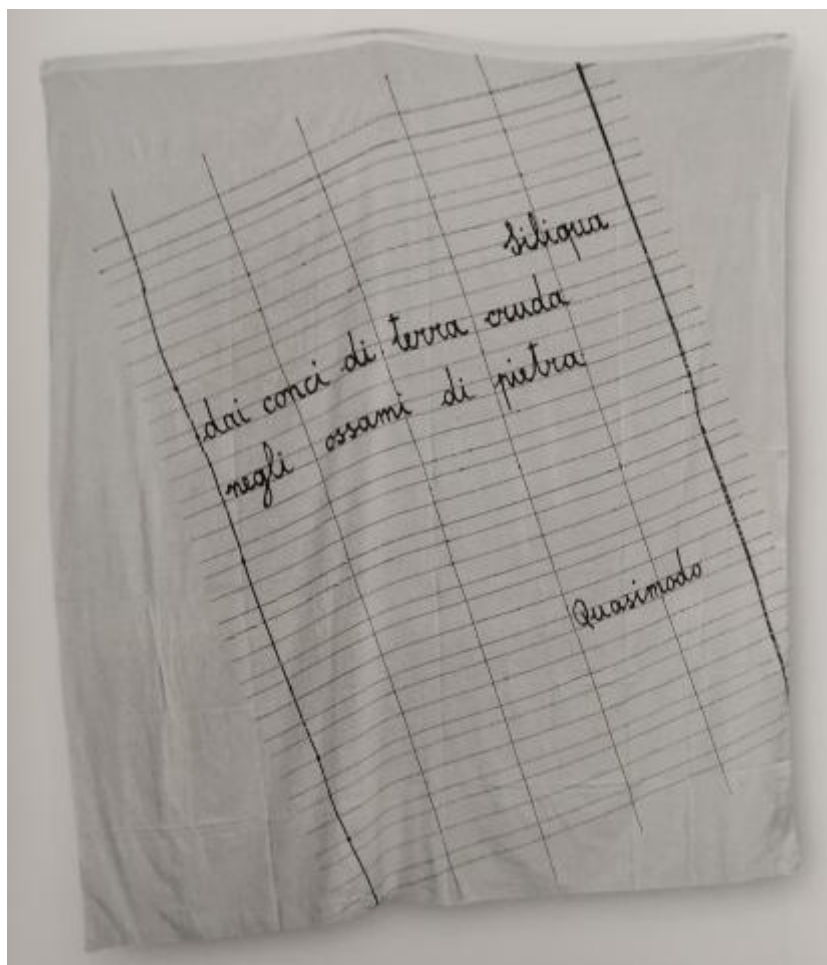 Siliqua
dai conci di terra cruda
negli ossami di pietra
Quasimodo